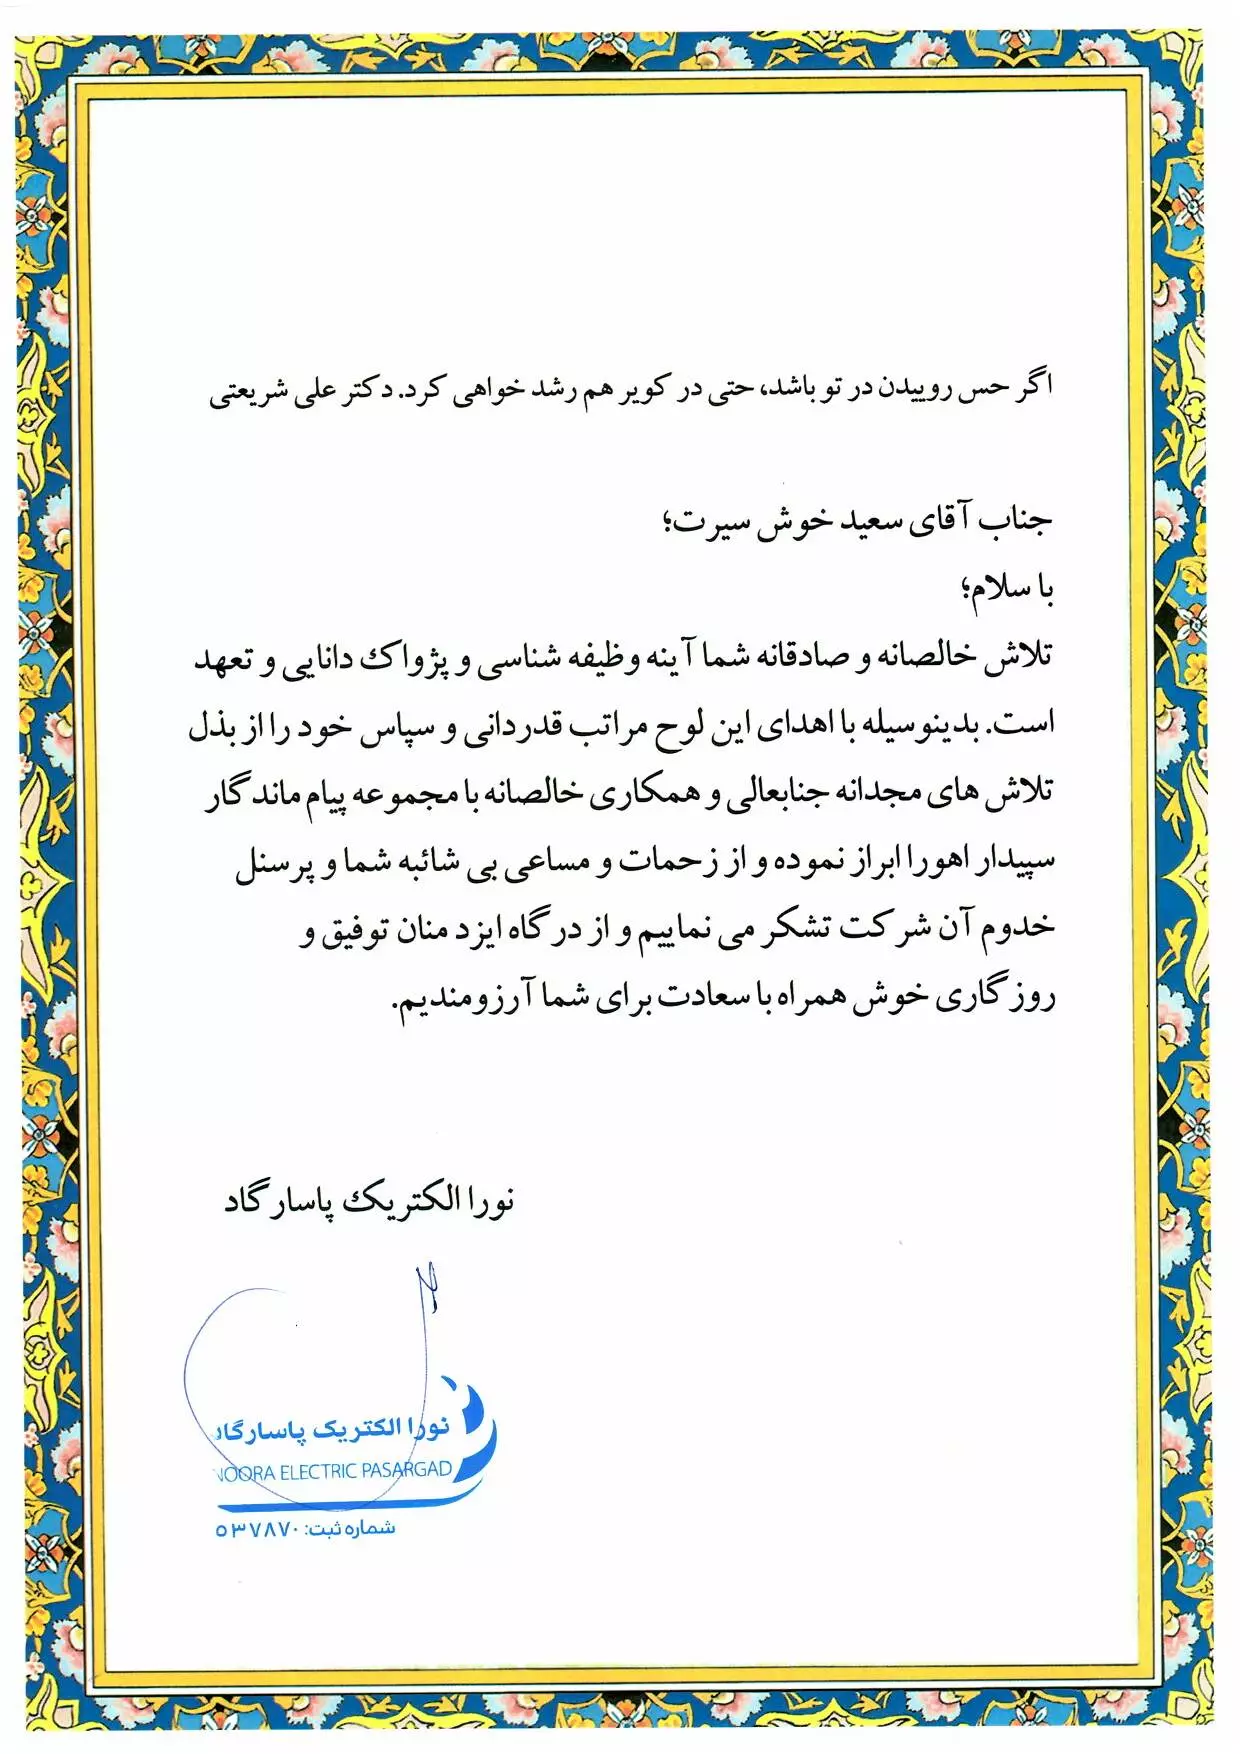 اگر حس روییدن در تو باشد، حتی در کویر هم رشد خواهی کرد. دکتر علی شریعتی
جناب آقای سعید خوش سیرت؛
با سلام؛
تلاش خالصانه و صادقانه شما آینه وظیفه شناسی و پژواک دانایی و تعهد
است. بدینوسیله با اهدای این لوح مراتب قدردانی و سپاس خود را از بذل
تلاش های مجدانه جنابعالی و همکاری خالصانه با مجموعه پیام ماندگار
سپیدار اهورا ابراز نموده و از زحمات و مساعی بی شائبه شما و پرسنل
خدوم آن شرکت تشکر می نماییم و از درگاه ایزد منان توفیق و
روزگاری خوش همراه با سعادت برای شما آرزومندیم.
نورا الکتریک پاسارگاد
نورا الکتریک پاسارگاد
NOORA ELECTRIC PASARGAD
شماره ثبت: ۵۳۷۸۷۰